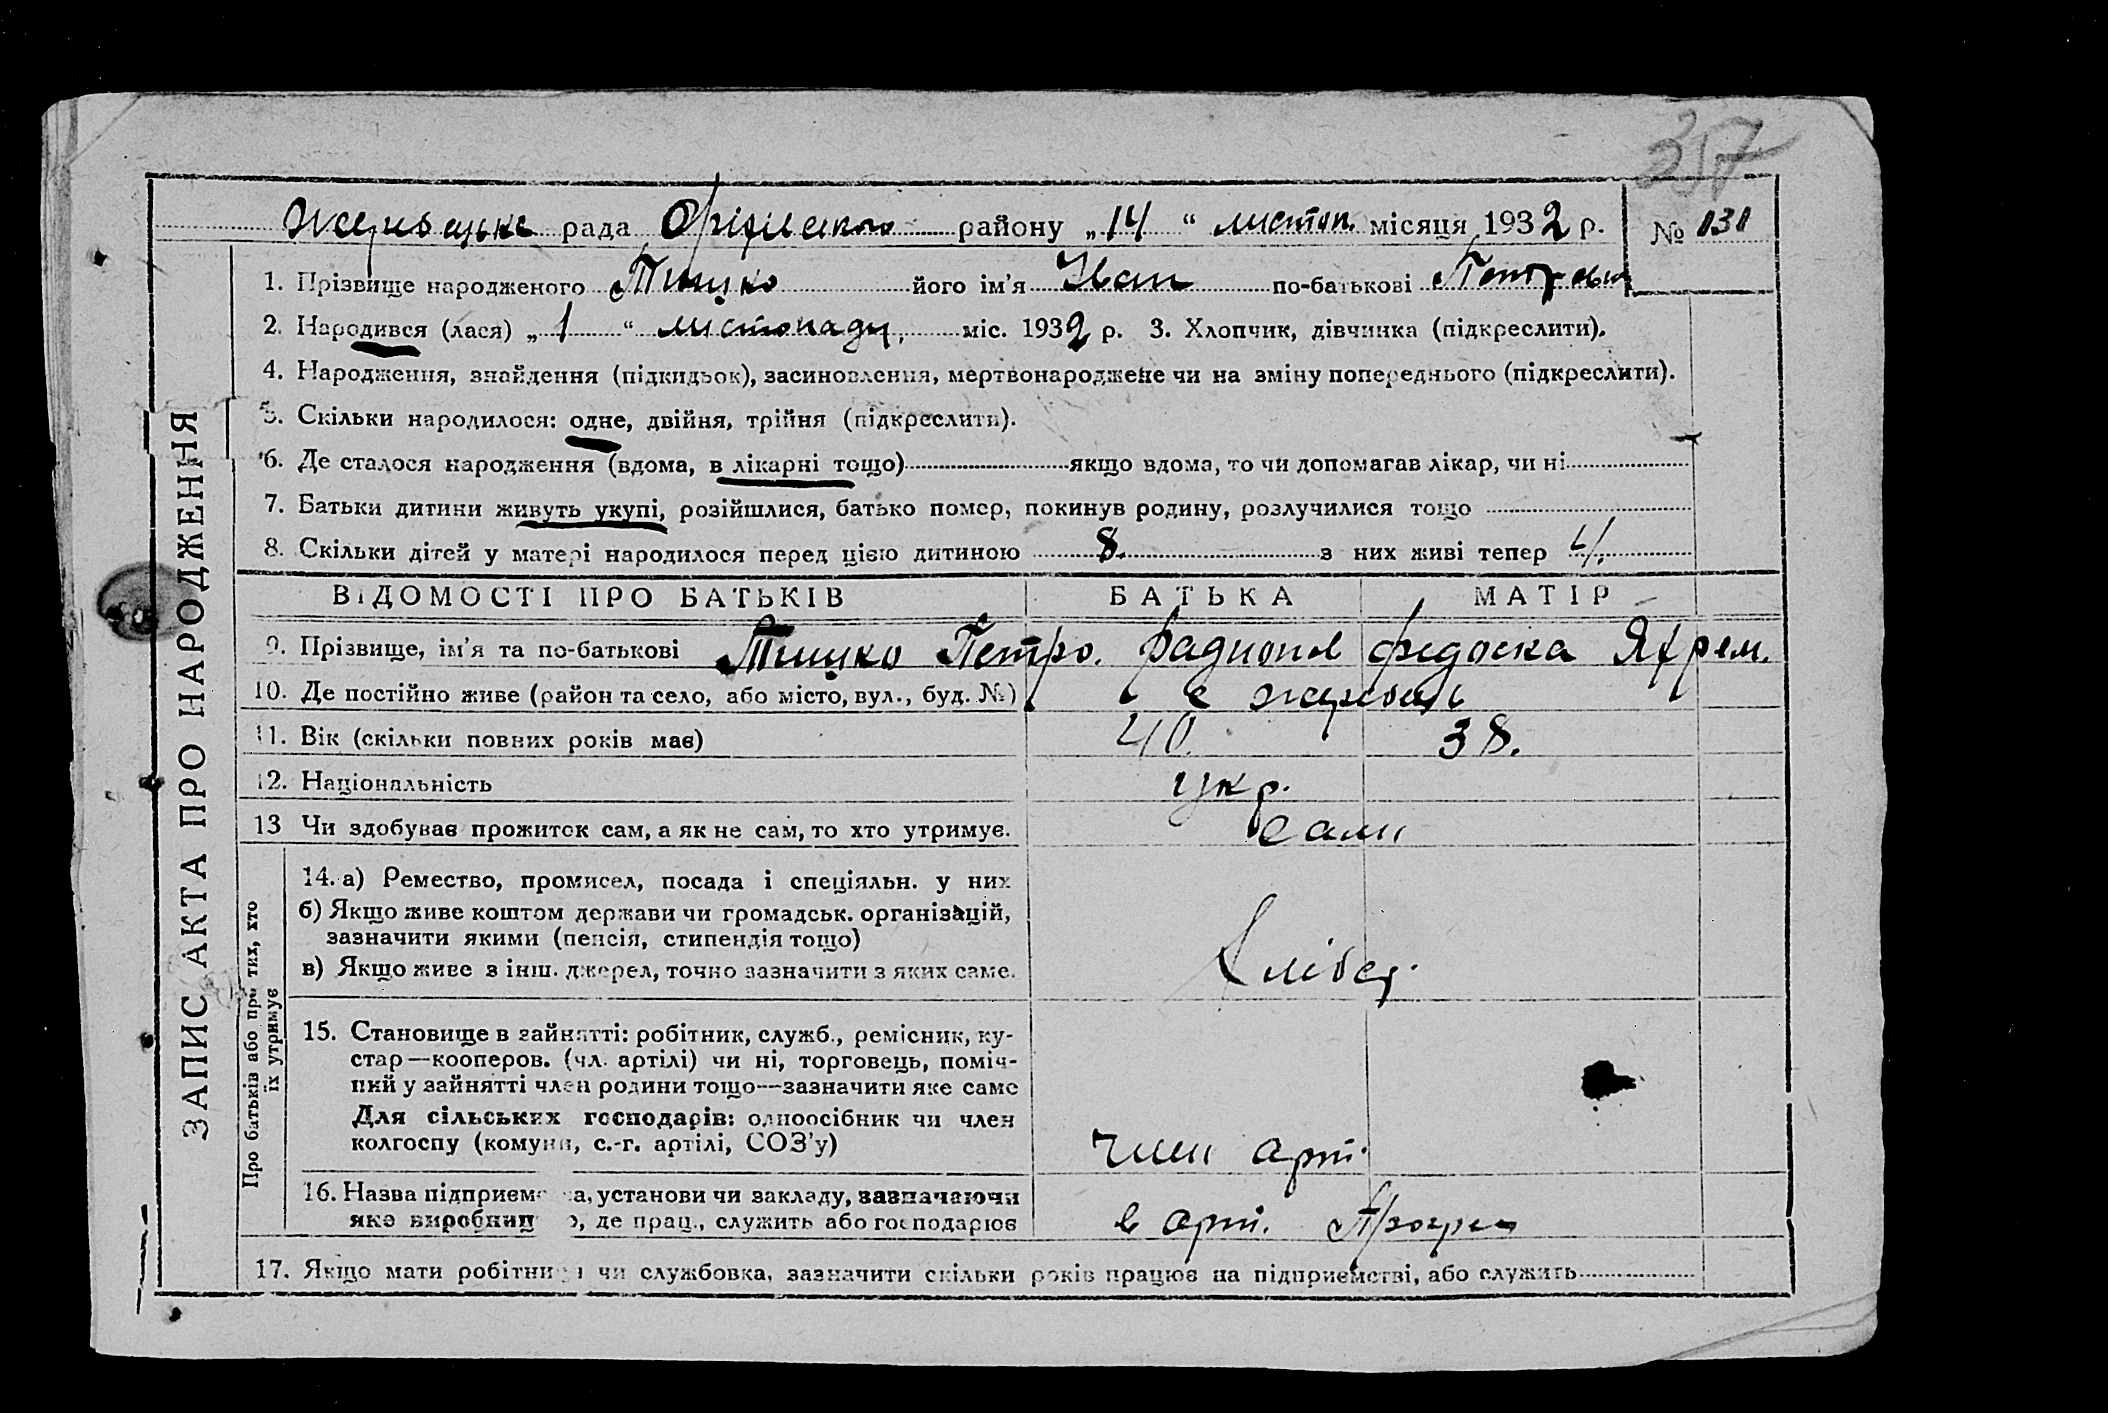 357
рада района „14“ листоп. місяця 1932 р. № 131
1. Прізвище народженого Тицко його ім'я Іван по-батькові Петрович
2. Народився (лася) „1“ листопаду, міс. 1932 р. 3. Хлопчик, дівчинка (підкреслити).
4. Народження, знайдення (підкидьок), засиновлення, мертвонароджене чи на зміну попереднього (підкреслити).
5. Скільки народилося: одне, двійня, трійня (підкреслити).
6. Де сталося народження (вдома, в лікарні тощо) якщо вдома, то чи допомагав лікар, чи ні
7. Батьки дитини живуть укупі, розійшлися, батько помер, покинув родину, розлучилися тощо
8. Скільки дітей у матері народилося перед цією дитиною 8. з них живі тепер 4.
ВІДОМОСТІ ПРО БАТЬКІВ БАТЬКА МАТІР
9. Прізвище, ім'я та по-батькові Тицко Петро. Федоска Яхрем.
10. Де постійно живе (район та село, або місто, вул., буд. №) с
11. Вік (скільки повних років має) 40. 38.
12. Національність укр.
13 Чи здобуває прожиток сам, а як не сам, то хто утримує. сами
14. а) Ремество, промисел, посада і спеціяльн. у них
б) Якщо живе коштом держави чи громадськ. організацій,
зазначити якими (пенсія, стипендія тощо)
в) Якщо живе з інш. джерел, точно зазначити з яких саме. Хлібор.
15. Становище в зайнятті: робітник, служб., ремісник, ку-
стар—кооперов. (чл. артілі) чи ні, торговець, поміч-
ний у зайнятті член родини тощо—зазначити яке саме
Для сільських господарів: одноосібник чи член
колгоспу (комуни, с.-г. артілі, СОЗ'у) член арт.
16. Назва підприємства, установи чи закладу, зазначаючи
яке виробництво, де прац., служить або господарює в арт.
17. Якщо мати робітниця чи службовка, зазначити скільки років працює на підприємстві, або служить
ЗАПИС АКТА ПРО НАРОДЖЕННЯ
Про батьків або про тих, хто
їх утримує